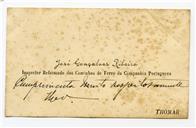 José Gonçalves Ribeiro
Inspector Reformado dos Caminhos de Ferro da Companhia Portuguesa
Cumprimenta muito respeitosamente
THOMAR